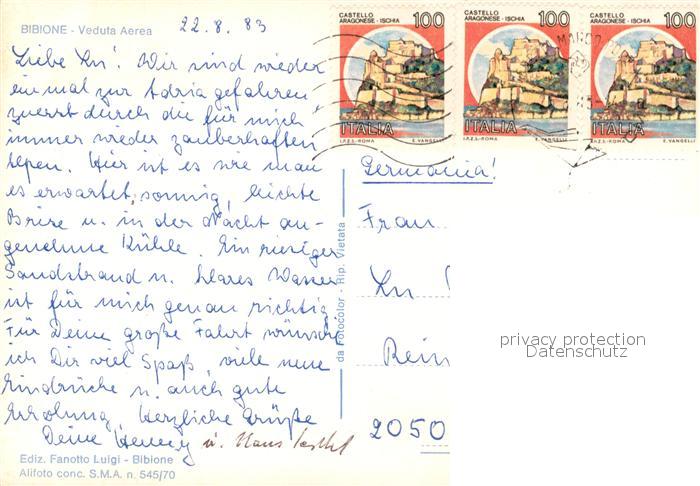 BIBIONE - Veduta Aerea
22.8.83
Liebe Lu! Wir sind wieder
einmal zur Adria gefahren
zuerst durch die für mich
immer wieder zauberhaften
Alpen. Hier ist es wie man
es erwartet, sonnig, leichte
Brise u. in der Nacht an-
genehme Kühle. Ein riesiger
Sandstrand u. klares Wasser
ist für mich genau richtig.
Für Deine große Fahrt wünsche
ich Dir viel Spaß, viele neue
Eindrücke u. auch gute
Erholung. Herzliche Grüße
Deine u. Hans
Ediz. Fanotto Luigi - Bibione
Alifoto conc. S.M.A. n. 545/70
da Fotocolor - Rip. Vietata
CASTELLO ARAGONESE - ISCHIA 100
ITALIA
I.P.Z.S. - ROMA E. VANGELLI
CASTELLO ARAGONESE - ISCHIA 100
ITALIA
I.P.Z.S. - ROMA E. VANGELLI
CASTELLO ARAGONESE - ISCHIA 100
ITALIA
I.P.Z.S. - ROMA E. VANGELLI
Germania!
Frau
Lu
Rein
2050
privacy protection
Datenschutz